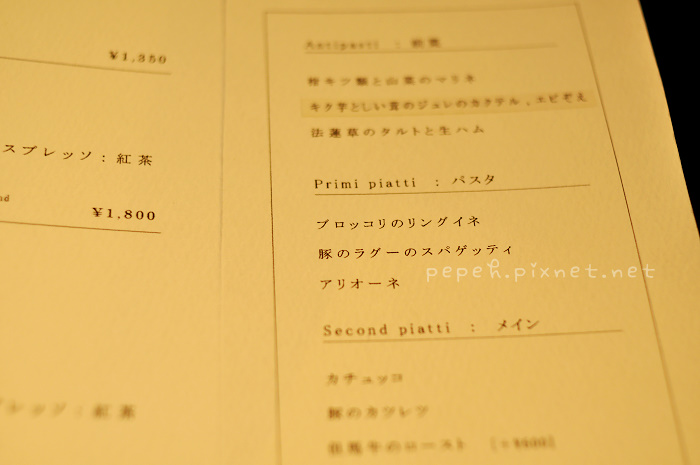 ¥1,350
スプレッソ : 紅茶
nd
¥1,800
プレッソ : 紅茶
Antipasti : 前菜
キノコ類と山菜のマリネ
キクイモとしい貴のジュレのカクテル , エビぞえ
法蓮草のタルトと生ハム
Primi piatti : パスタ
ブロッコリのリングイネ
豚のラグーのスパゲッティ
アリオーネ
pepeh.pixnet.net
Second piatti : メイン
カチュッコ
豚のカツレツ
牛のロースト